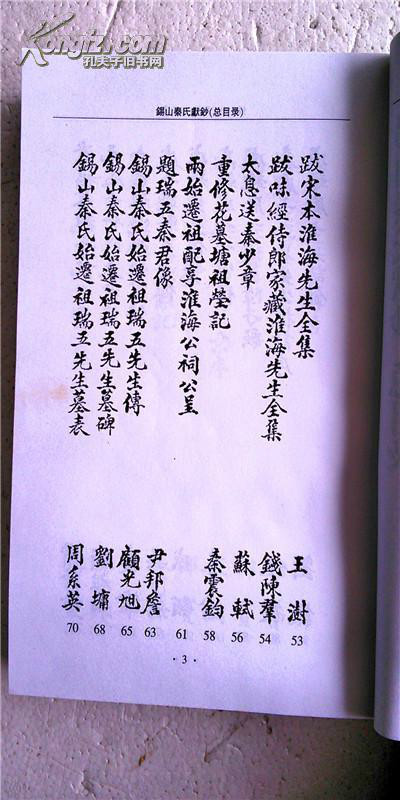 Kongfz.com
孔夫子旧书网
錫山秦氏獻鈔(总目录)
跋宋本淮海先生全集 王澍 53
跋味經侍郎家藏淮海先生全集 錢陳羣 54
太息送秦少章 蘇軾 56
重修花墓塘祖塋記 秦震鈞 58
兩始遷祖配享淮海公祠公呈 61
題瑞五秦君像 尹邦詹 63
錫山秦氏始遷祖瑞五先生傳 顧光旭 65
錫山秦氏始遷祖瑞五先生墓碑 劉墉 68
錫山秦氏始遷祖瑞五先生墓表 周系英 70
·3·